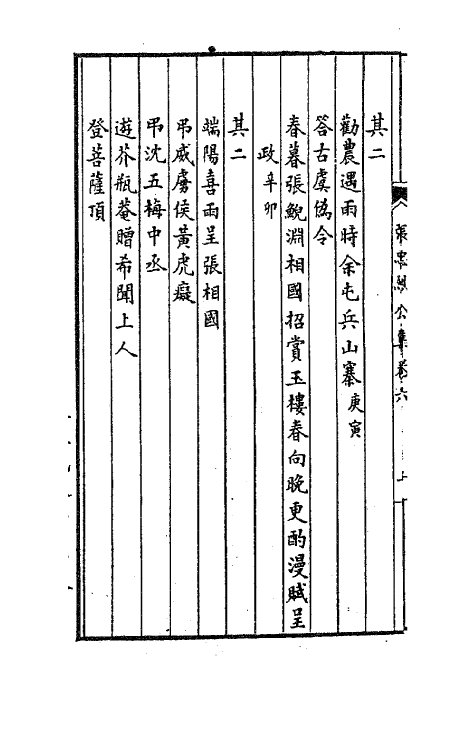 張忠烈公集卷六
其二
勸農遇雨時余屯兵山寨庚寅
答古虞偽令
春暮張鯢淵相國招賞玉樓春向晚更酌漫賦呈
政辛卯
其二
端陽喜雨呈張相國
弔威虜侯黃虎癡
弔沈五梅中丞
遊芥瓶菴贈希聞上人
登菩薩頂